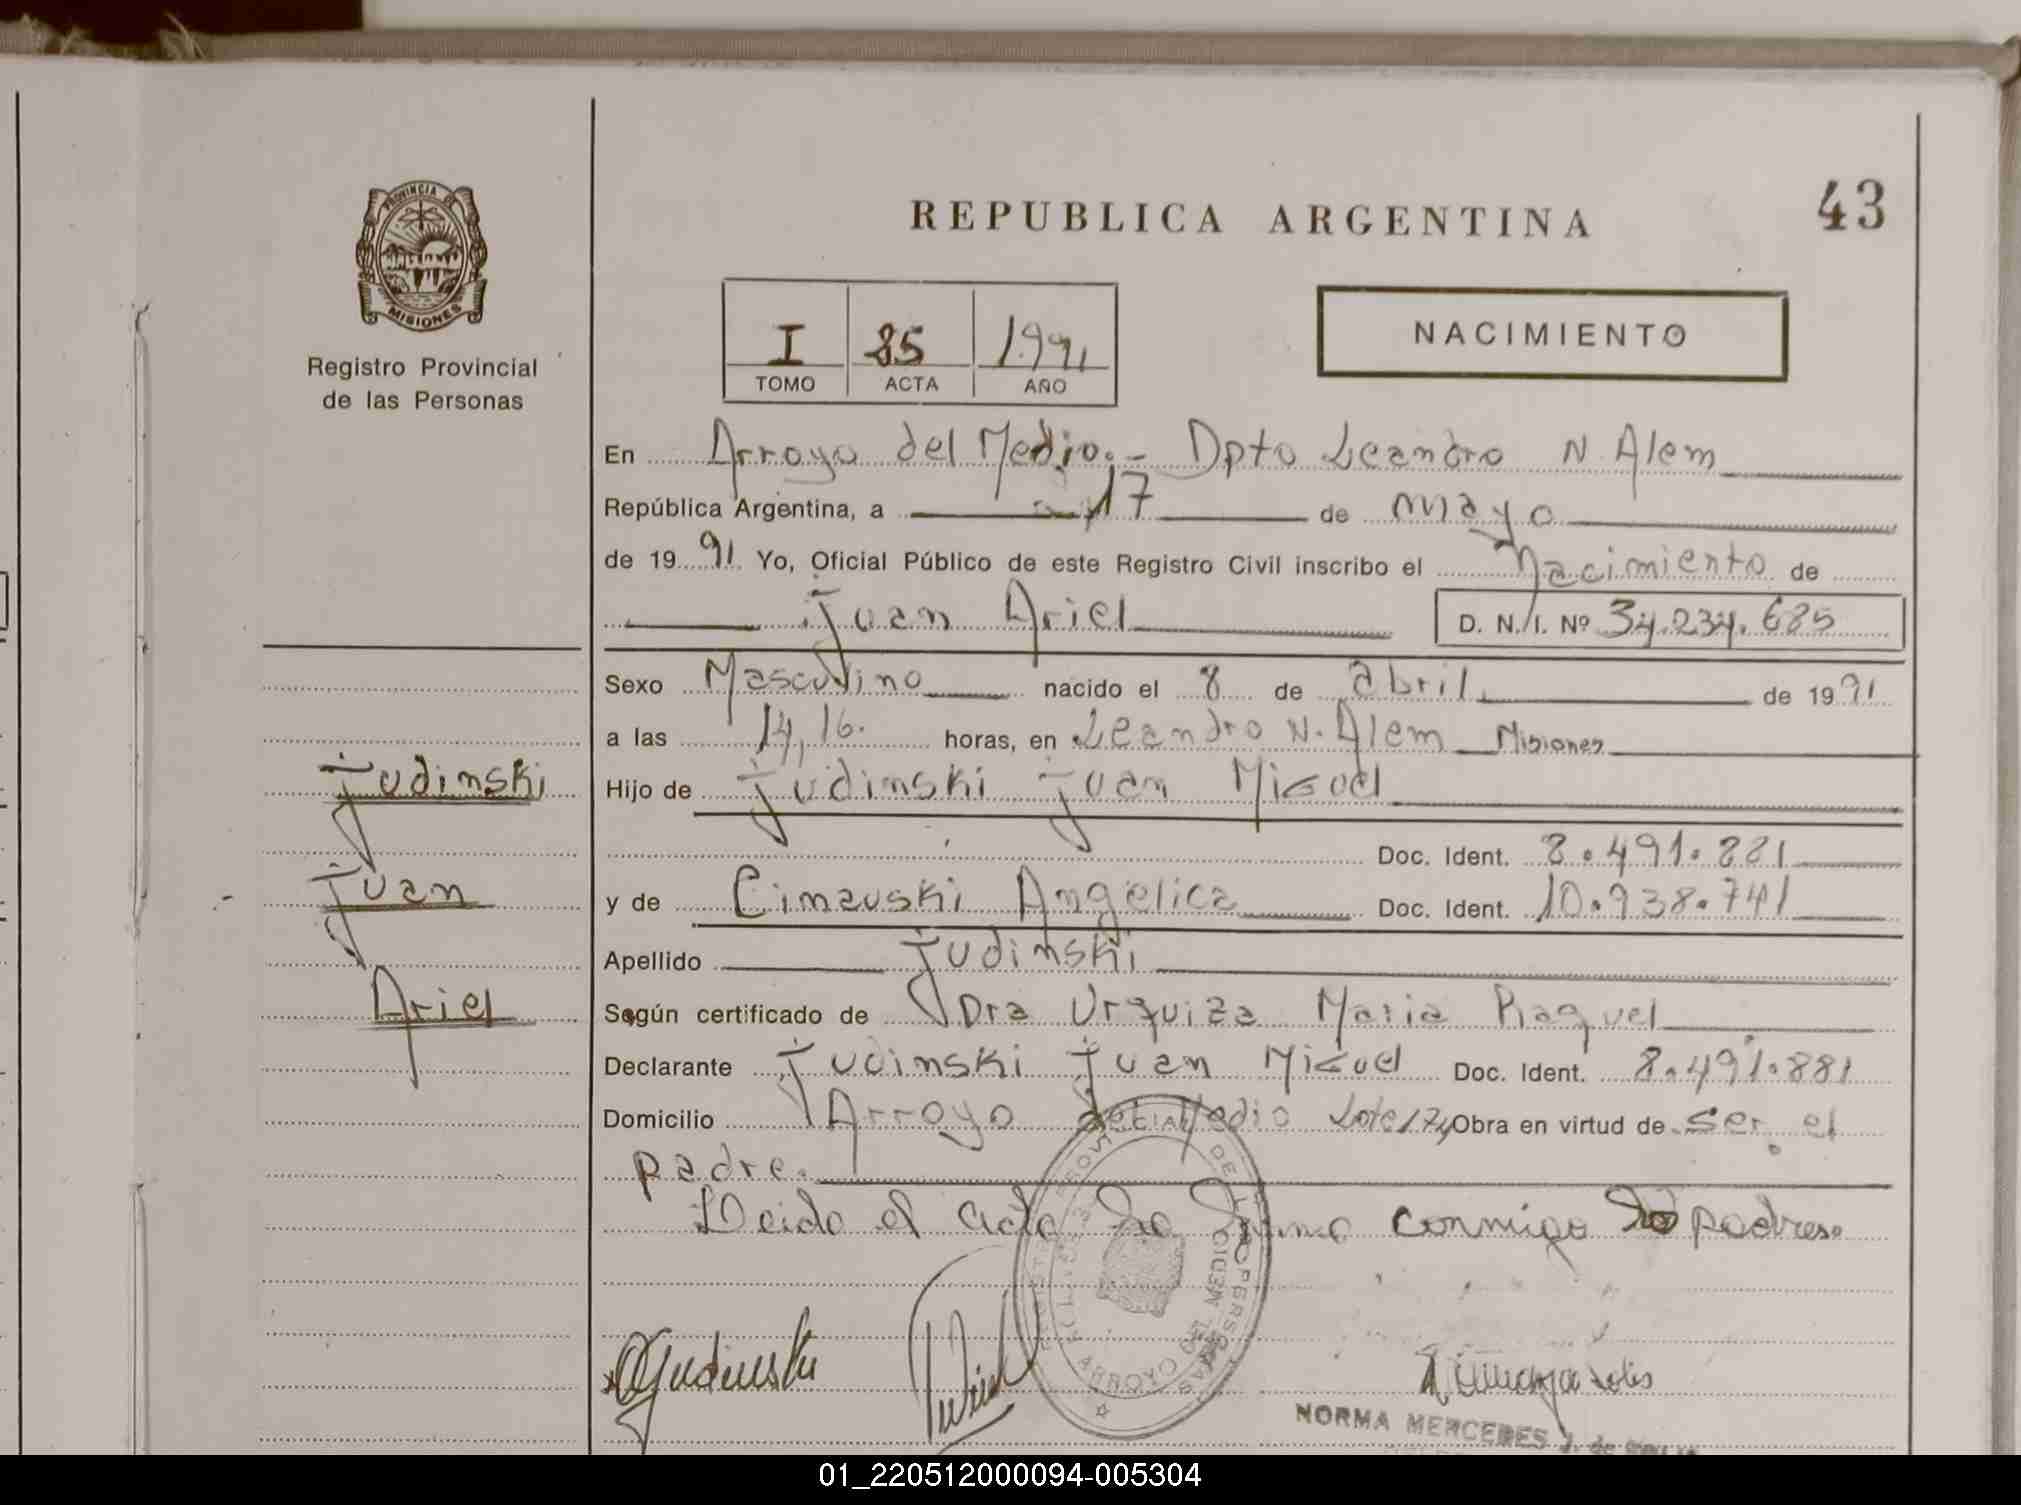 PROVINCIA DE
MISIONES
Registro Provincial
de las Personas
REPUBLICA ARGENTINA
43
I 85 1991
TOMO ACTA AÑO
NACIMIENTO
En Arroyo del Medio.- Dpto Leandro N. Alem
República Argentina, a 17 de mayo
de 1991 Yo, Oficial Público de este Registro Civil inscribo el Nacimiento de
Juan Ariel D. N. I. Nº 34.234.685
Sexo Masculino nacido el 8 de abril de 1991
a las 14,16. horas, en Leandro N. Alem Misiones
Judinski
Hijo de Judinski Juan Miguel
Doc. Ident. 8.491.881
Juan
y de Cimauski Angelica Doc. Ident. 10.938.741
Apellido Judinski
Ariel
Según certificado de Dra Urquiza Maria Raquel
Declarante Judinski Juan Miguel Doc. Ident. 8.491.881
Domicilio Arroyo del Medio Lote 174 Obra en virtud de ser el
padre.
Leido el acta la firma conmigo los padres.
Judinski
NORMA MERCEDES J. de
01_220512000094-005304